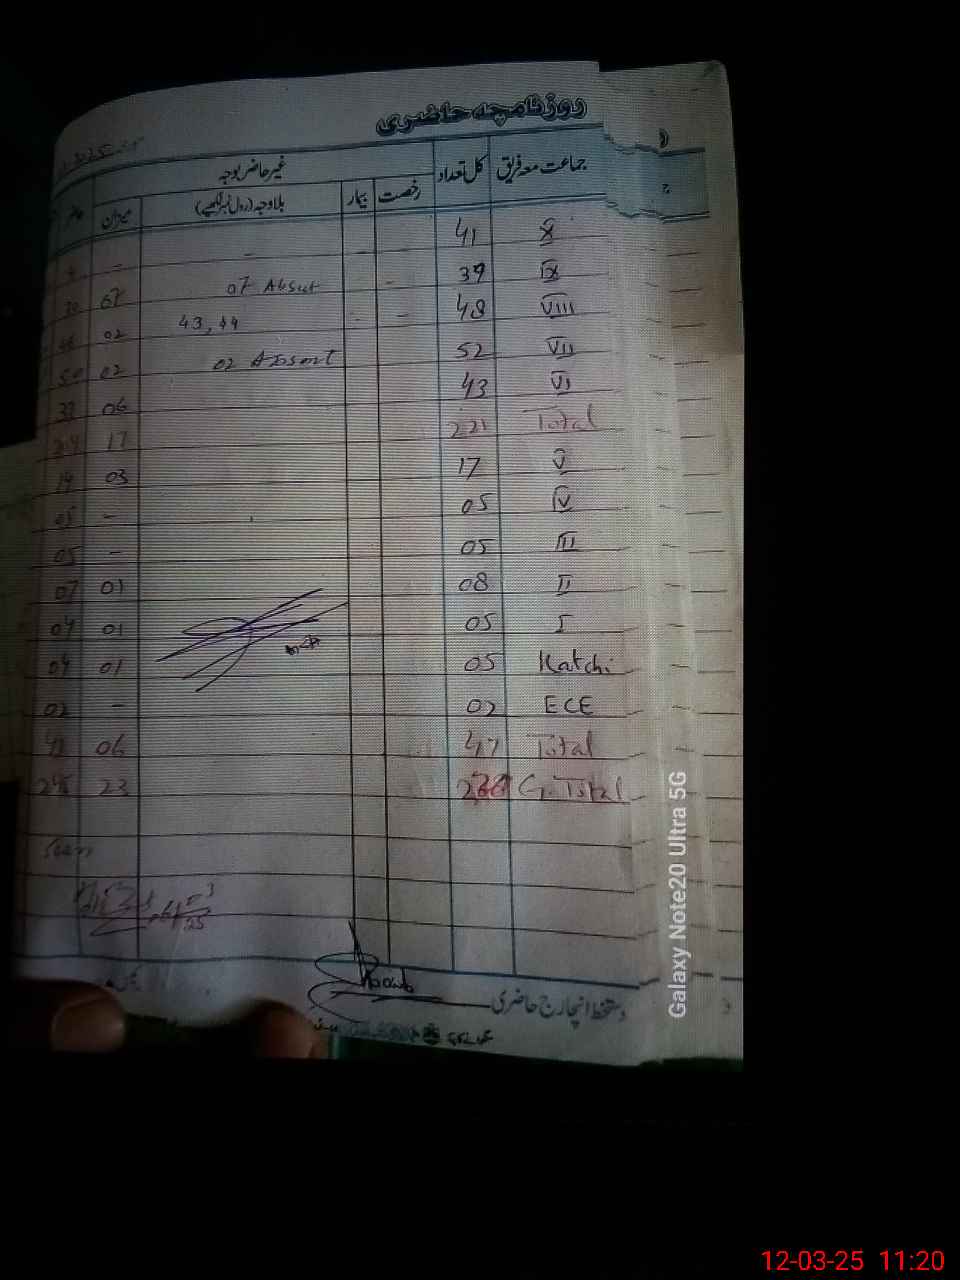 روزنامچہ حاضری
جماعت معہ فریق کل تعداد غیر حاضر بوجہ حاضر
رخصت بیمار بلاوجہ (رول نمبر لکھیے) میزان
X 41 - - - -
IX 39 - 07 Absent 07
VIII 48 - - 43, 44 02 46
VII 52 02 Absent 02 50
VI 43 06
Total 221 17
V 17 03 14
IV 05 - 05
III 05 - 05
II 08 01 07
I 05 01 04
Katchi 05 01 04
ECE 02 - 02
Total 47 06 41
G. Total 23 245
Seen
دستخط انچارج حاضری
Galaxy Note20 Ultra 5G
12-03-25 11:20